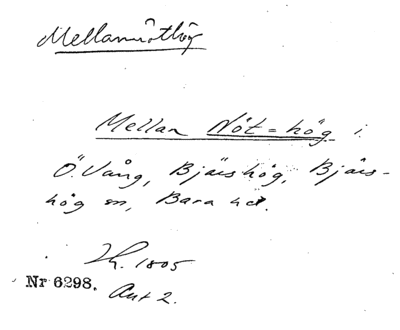 Mellannöthög
Mellan Nöt=hög i
Ö. Vång, Bjärshög, Bjärs-
hög sn, Bara hd.
1805
Nr 6298. Akt 2.